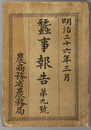 明治二十六年三月
蠶事報告
第九號
農商務省農務局